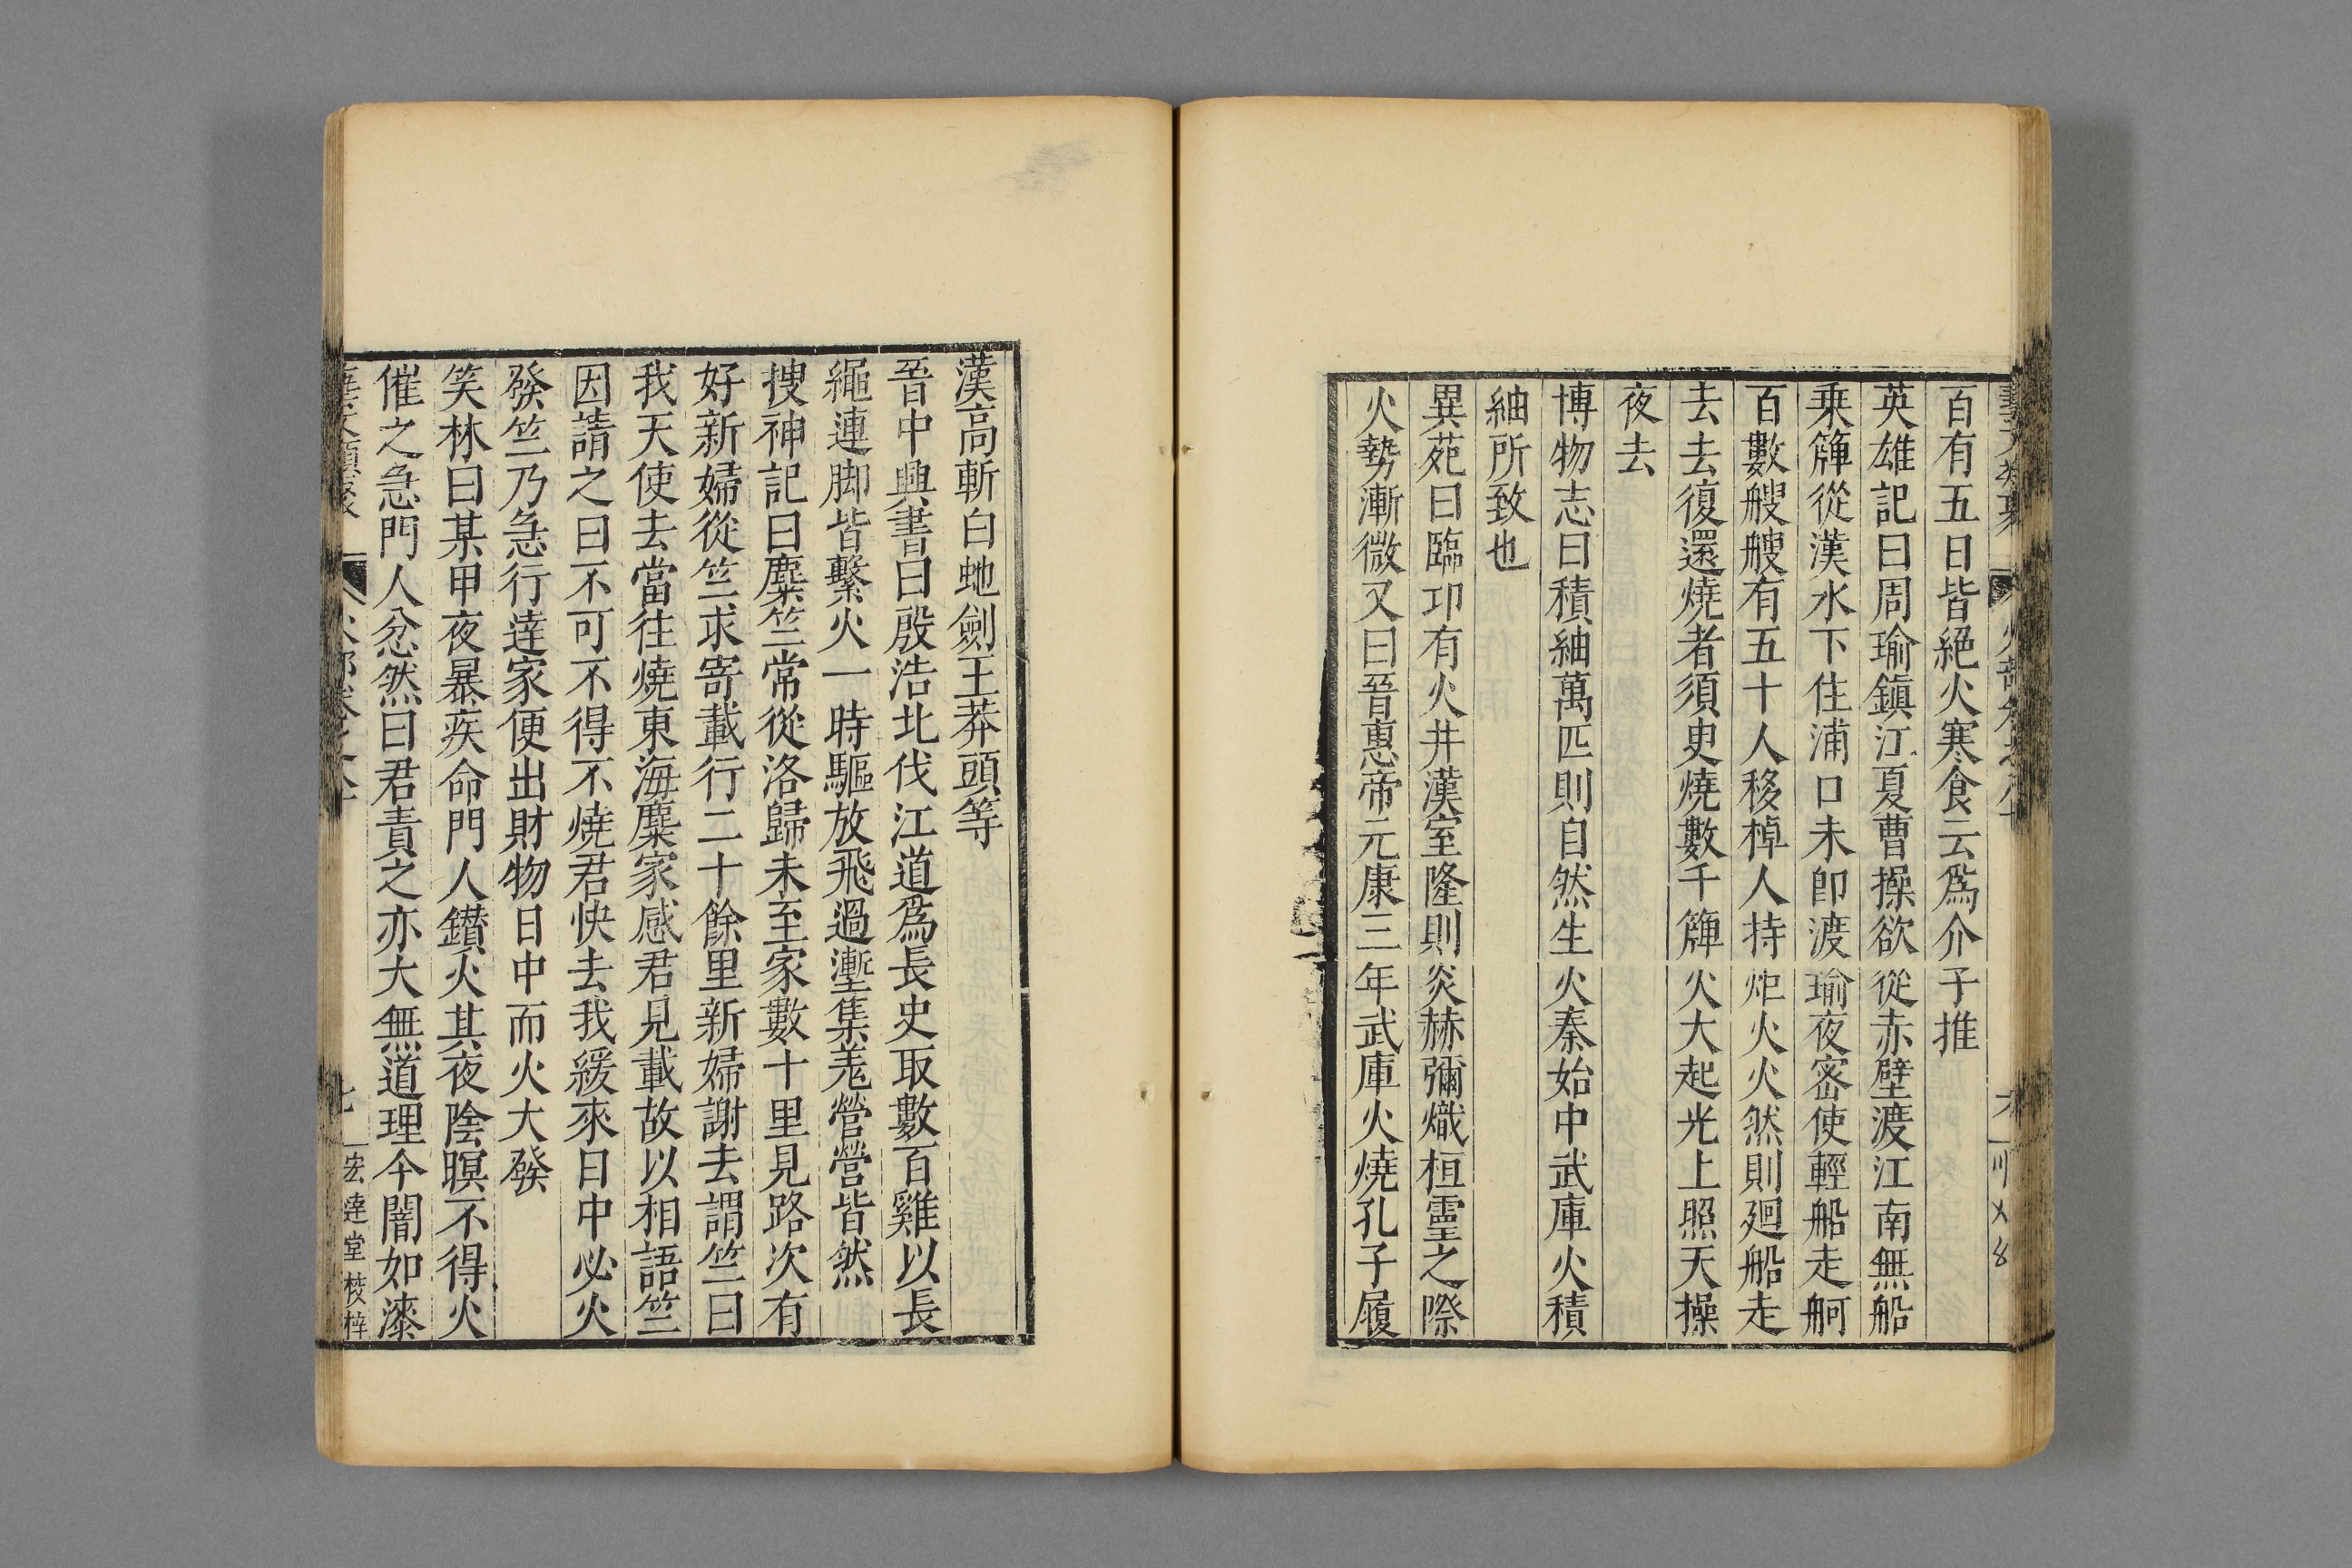 百有五日皆絕火寒食云爲介子推
英雄記曰周瑜鎮江夏曹操欲從赤壁渡江南無船
乗簰從漢水下住浦口未卽渡瑜夜密使輕船走舸
百數艘艘有五十人移棹人持炬火火然則廻船走
去去復還燒者須臾燒數千簰火大起光上照天操
夜去
博物志曰積紬萬匹則自然生火秦始中武庫火積
紬所致也
異苑曰臨卭有火井漢室隆則炎赫彌熾桓靈之際
火勢漸微又曰晉惠帝元康三年武庫火燒孔子履
漢高斬白虵劍王莽頭等
晉中興書曰殷浩北伐江道爲長史取數百雞以長
繩連脚皆繫火一時驅放飛過塹集羌營營皆然
搜神記曰麋竺常從洛歸未至家數十里見路次有
好新婦從竺求寄載行二十餘里新婦謝去謂竺曰
我天使去當往燒東海麋家感君見載故以相語竺
因請之曰不可不得不燒君快去我緩來日中必火
發竺乃急行達家便出財物日中而火大發
笑林曰某甲夜暴疾命門人鑚火其夜陰暝不得火
催之急門人忿然曰君責之亦大無道理今闇如漆
七 宏達堂校梓